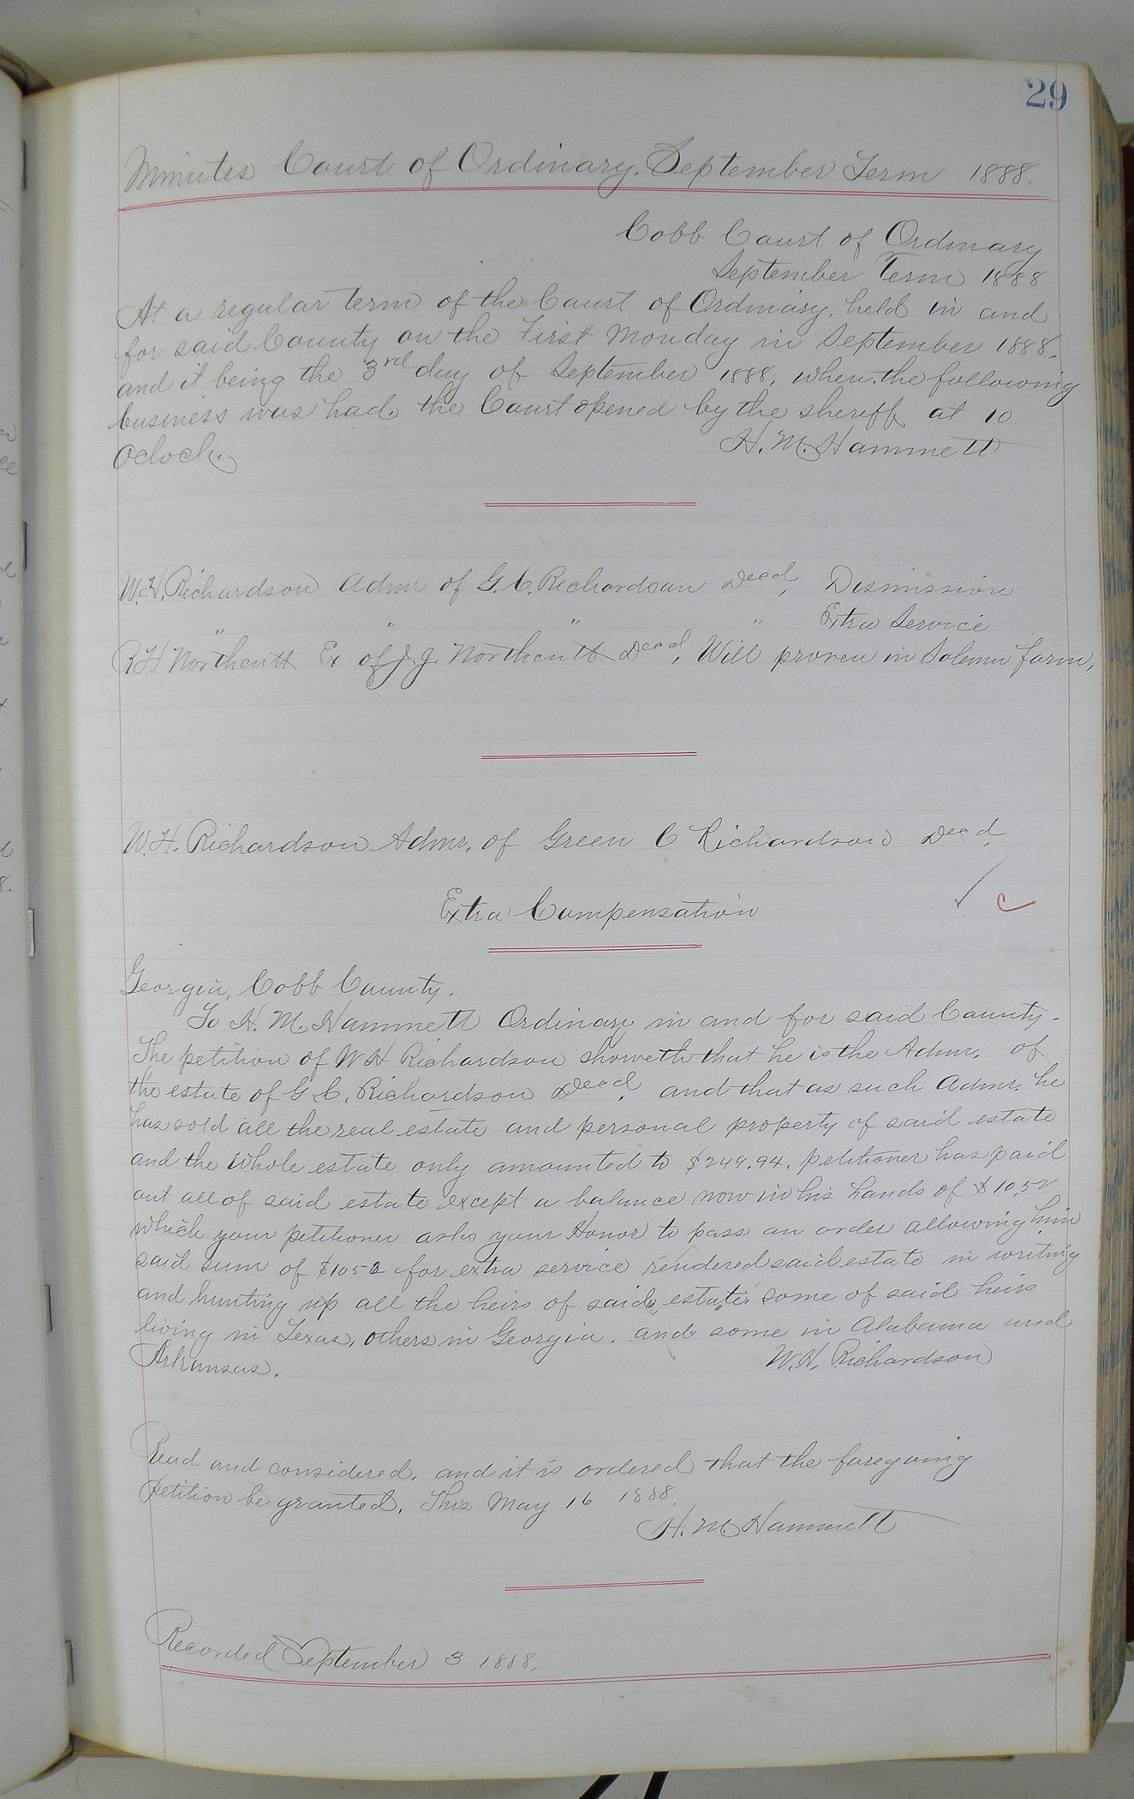 29
Minutes Court of Ordinary. September Term 1888.
Cobb Court of Ordinary
September Term 1888
At a regular term of the Court of Ordinary, held in and
for said County on the First Monday in September 1888.
and it being the 3rd day of September 1888, when the following
business was had, the Court opened by the sheriff at 10
Oclock.
H. M. Hammett
W. H. Richardson Admr of G. C. Richardson Decd, Dismission
" " " " Extra Service
R H Northcutt Ex of J. J. Northcutt Decd, Will proven in Solemn form,
W. H. Richardson Admr. of Green C Richardson Decd.
Extra Compensation
✓ C
Georgia, Cobb County.
To H. M. Hammett Ordinary in and for said County.
The petition of W H Richardson showeth that he is the Admr. of
the estate of G C. Richardson Decd. and that as such Admr. he
has sold all the real estate and personal property of said estate
and the whole estate only amounted to $249.94. petitioner has paid
out all of said estate except a balance now in his hands of $10.52
which your petitioner asks your Honor to pass an order allowing him
said sum of $10.52 for extra service rendered said estate in writing
and hunting up all the heirs of said estate some of said heirs
living in Texas, others in Georgia. and some in Alabama and
Arkansas.
W. H. Richardson
Read and considered. and it is ordered that the foregoing
petition be granted. This May 16 1888.
H. M. Hammett
Recorded September 3 1888.